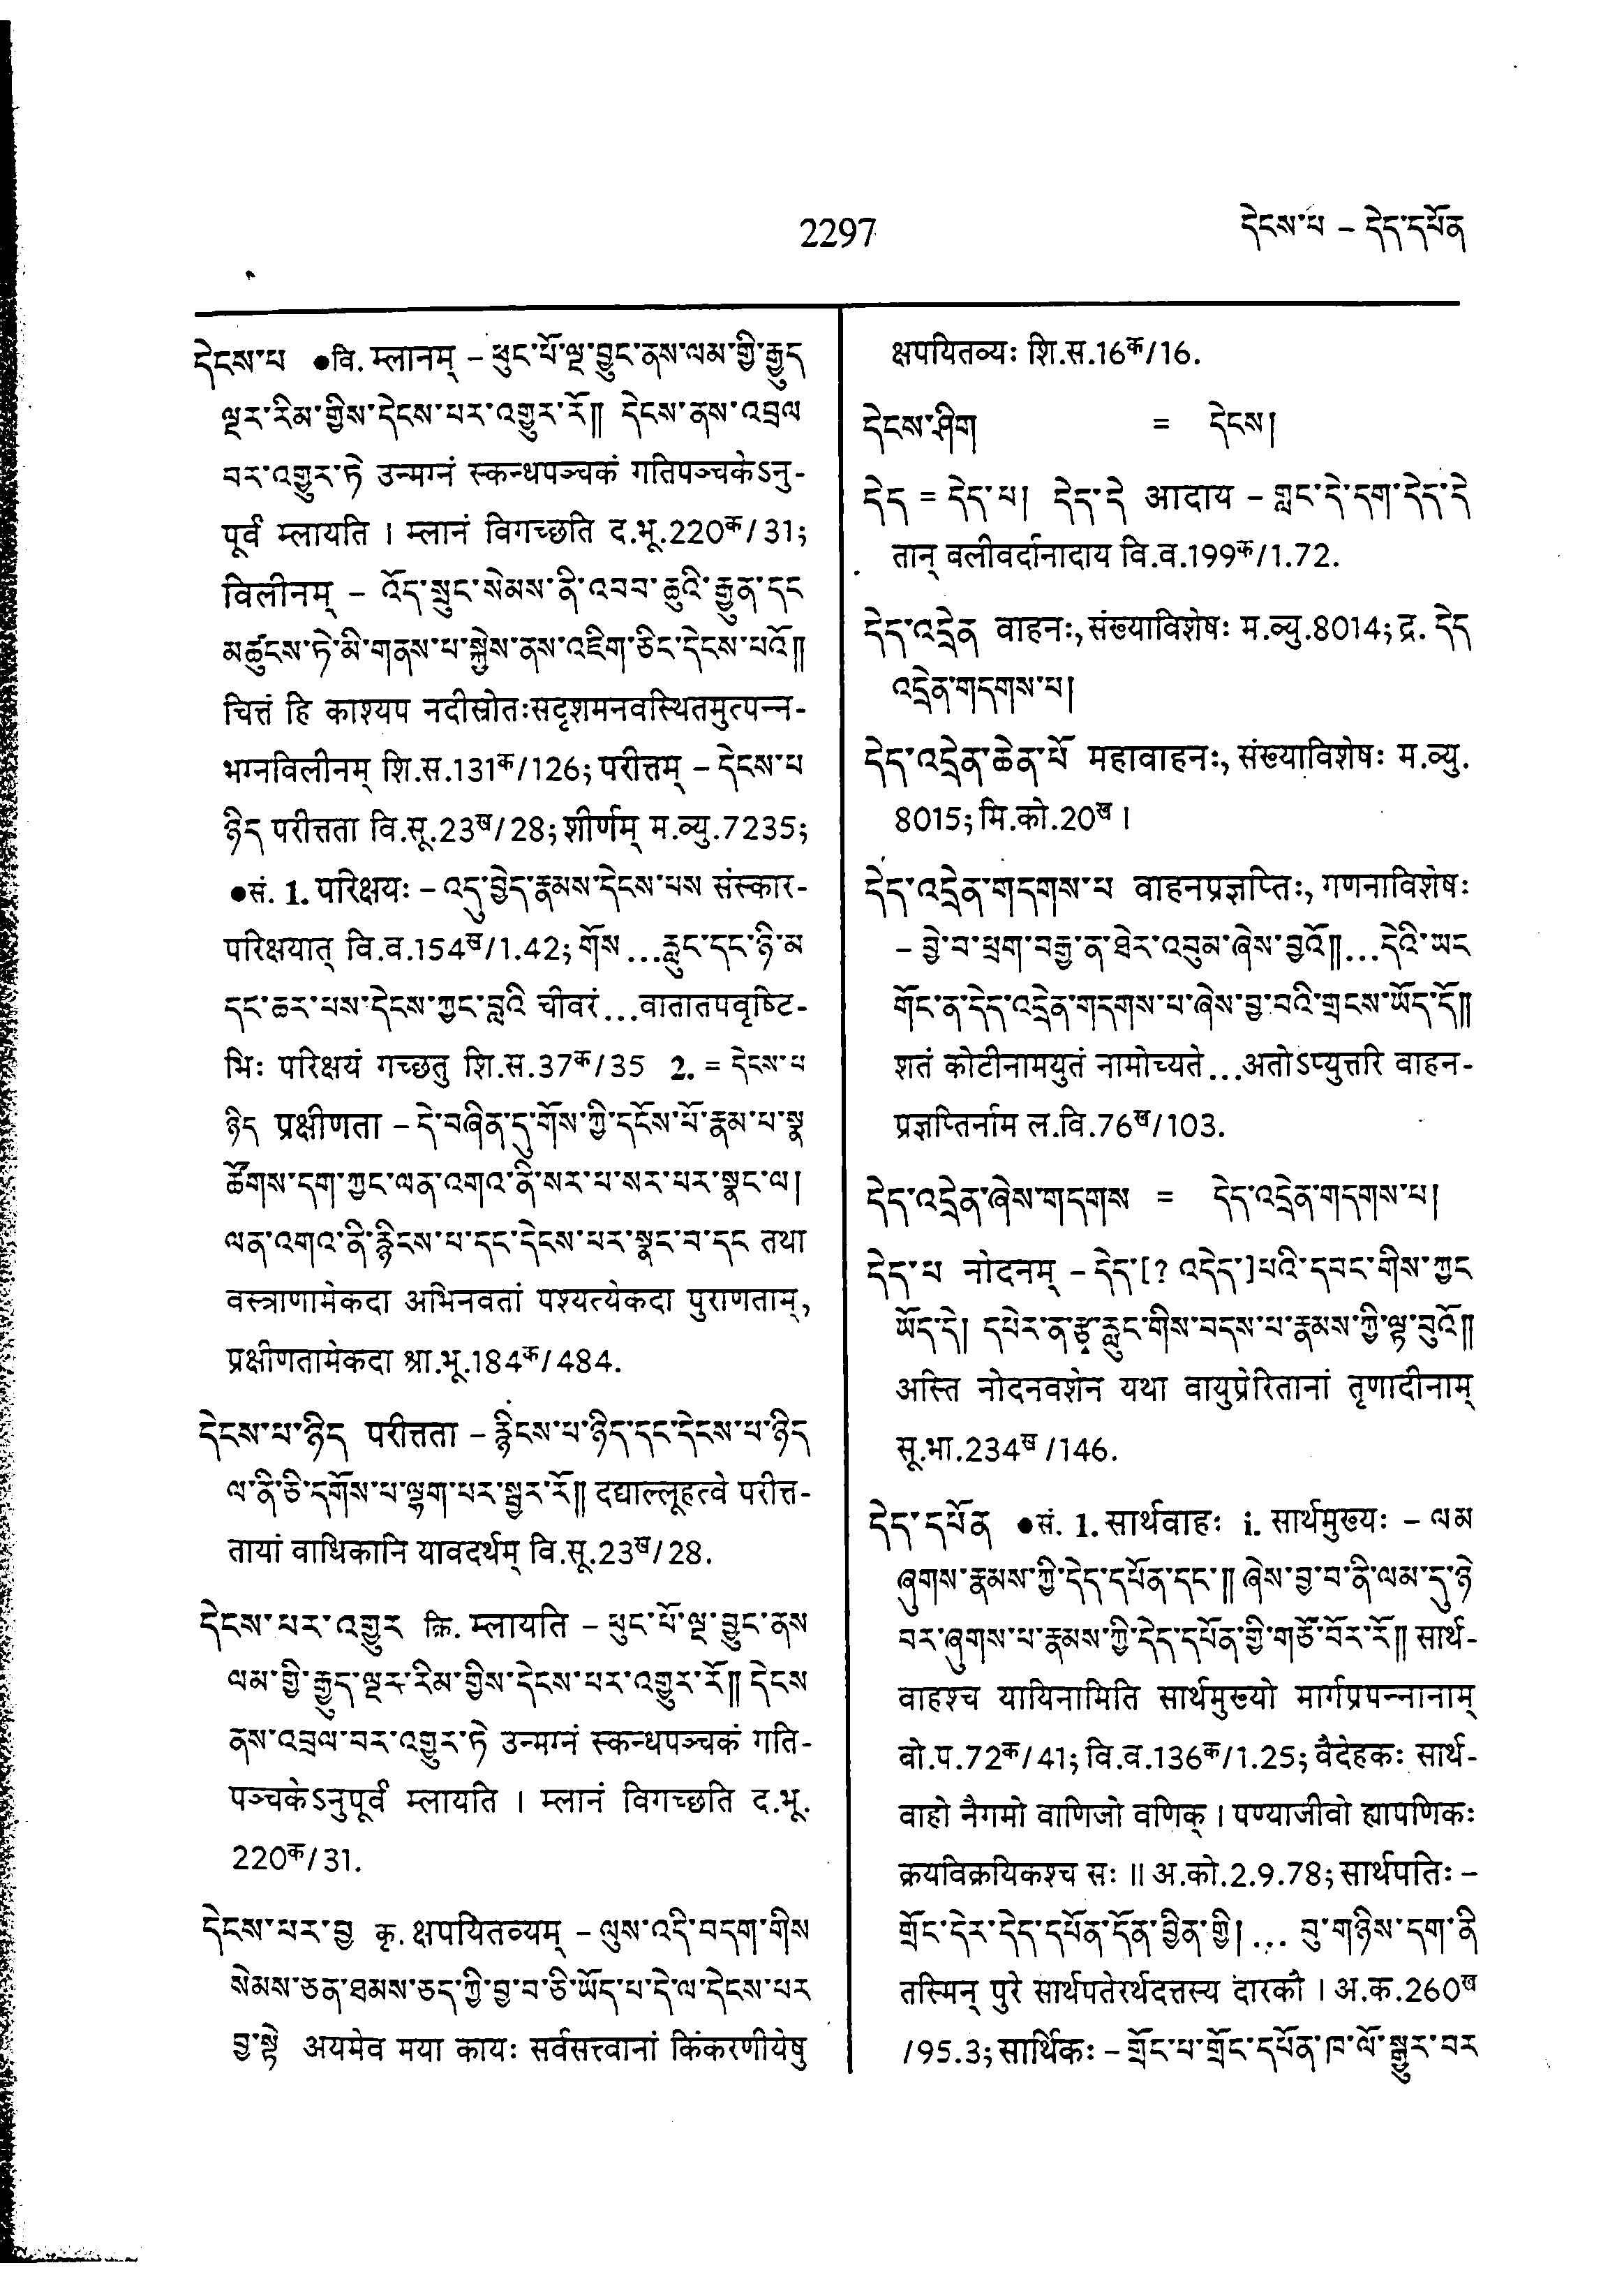 2297
དེངས་པ – དེད་དཔོན
དེངས་པ ●वि. म्लानम् – ཕུང་པོ་ལྔ་བྱུང་ནས་ལམ་གྱི་རྒྱུད
ལྔར་རིམ་གྱིས་དེངས་པར་འགྱུར་རོ༎ དེངས་ནས་འབྲལ
བར་འགྱུར་ཏེ उन्मग्नं स्कन्धपञ्चकं गतिपञ्चकेऽनु-
पूर्वं म्लायति । म्लानं विगच्छति द.भू.220क/31;
विलीनम् – འོད་སྲུང་སེམས་ནི་འབབ་ཆུའི་རྒྱུན་དང
མཚུངས་ཏེ་མི་གནས་པ་སྐྱེས་ནས་འཇིག་ཅིང་དེངས་པའོ༎
चित्तं हि काश्यप नदीस्रोतःसदृशमनवस्थितमुत्पन्न-
भग्नविलीनम् शि.स.131क/126; परीत्तम् – དེངས་པ
ཉིད परीत्तता वि.सू.23ख/28; शीर्णम् म.व्यु.7235;
●सं. 1. परिक्षयः – འདུ་བྱེད་རྣམས་དེངས་པས संस्कार-
परिक्षयात् वि.व.154ख/1.42; གོས …རླུང་དང་ཉི་མ
དང་ཆར་པས་དེངས་ཀྱང་བླའི चीवरं…वातातपवृष्टि-
भिः परिक्षयं गच्छतु शि.स.37क/35 2. = དེངས་པ
ཉིད प्रक्षीणता – དེ་བཞིན་དུ་གོས་ཀྱི་དངོས་པོ་རྣམ་པ་སྣ
ཚོགས་དག་ཀྱང་ལན་འགའ་ནི་སར་པ་སར་པར་སྣང་ལ།
ལན་འགའ་ནི་རྙིངས་པ་དང་དེངས་པར་སྣང་བ་དང तथा
वस्त्राणामेकदा अभिनवतां पश्यत्येकदा पुराणताम्,
प्रक्षीणतामेकदा श्रा.भू.184क/484.
དེངས་པ་ཉིད परीत्तता – རྙིངས་པ་ཉིད་དང་དེངས་པ་ཉིད
ལ་ནི་ཅི་དགོས་པ་ལྷག་པར་སྦྱར་རོ༎ दद्याल्लूहत्वे परीत्त-
तायां वाधिकानि यावदर्थम् वि.सू.23ख/28.
དེངས་པར་འགྱུར क्रि. म्लायति – ཕུང་པོ་ལྔ་བྱུང་ནས
ལམ་གྱི་རྒྱུད་ལྔར་རིམ་གྱིས་དེངས་པར་འགྱུར་རོ༎ དེངས
ནས་འབྲལ་བར་འགྱུར་ཏེ उन्मग्नं स्कन्धपञ्चकं गति-
पञ्चकेऽनुपूर्वं म्लायति । म्लानं विगच्छति द.भू.
220क/31.
དེངས་པར་བྱ कृ. क्षपयितव्यम् – ལུས་འདི་བདག་གིས
སེམས་ཅན་ཐམས་ཅད་ཀྱི་བྱ་བ་ཅི་ཡོད་པ་དེ་ལ་དེངས་པར
བྱ་སྟེ अयमेव मया कायः सर्वसत्त्वानां किंकरणीयेषु
क्षपयितव्यः शि.स.16क/16.
དེངས་ཤིག = དེངས།
དེད = དེད་པ། དེད་དེ आदाय – གླང་དེ་དག་དེད་དེ
तान् बलीवर्दानादाय वि.व.199क/1.72.
དེད་འདྲེན वाहनः, संख्याविशेषः म.व्यु.8014; द्र. དེད
འདྲེན་གདགས་པ།
དེད་འདྲེན་ཆེན་པོ महावाहनः, संख्याविशेषः म.व्यु.
8015; मि.को.20ख।
དེད་འདྲེན་གདགས་པ वाहनप्रज्ञप्तिः, गणनाविशेषः
– བྱེ་བ་ཕྲག་བརྒྱ་ན་ཐེར་འབུམ་ཞེས་བྱའོ༎…དེའི་ཡང
གོང་ན་དེད་འདྲེན་གདགས་པ་ཞེས་བྱ་བའི་གྲངས་ཡོད་དོ༎
शतं कोटीनामयुतं नामोच्यते…अतोऽप्युत्तरि वाहन-
प्रज्ञप्तिर्नाम ल.वि.76ख/103.
དེད་འདྲེན་ཞེས་གདགས = དེད་འདྲེན་གདགས་པ།
དེད་པ नोदनम् – དེད་[? འདེད་]པའི་དབང་གིས་ཀྱང
ཡོད་དེ། དཔེར་ན་རྩྭ་རླུང་གིས་བདས་པ་རྣམས་ཀྱི་ལྟ་བུའོ༎
अस्ति नोदनवशेन यथा वायुप्रेरितानां तृणादीनाम्
सू.भा.234ख/146.
དེད་དཔོན ●सं. 1. सार्थवाहः i. सार्थमुख्यः – ལམ
ཞུགས་རྣམས་ཀྱི་དེད་དཔོན་དང་༎ ཞེས་བྱ་བ་ནི་ལམ་དུ་ཉེ
བར་ཞུགས་པ་རྣམས་ཀྱི་དེད་དཔོན་གྱི་གཙོ་བོར་རོ༎ सार्थ-
वाहश्च यायिनामिति सार्थमुख्यो मार्गप्रपन्नानाम्
बो.प.72क/41; वि.व.136क/1.25; वैदेहकः सार्थ-
वाहो नैगमो वाणिजो वणिक् । पण्याजीवो ह्यापणिकः
क्रयविक्रयिकश्च सः ॥ अ.को.2.9.78; सार्थपतिः –
གྲོང་དེར་དེད་དཔོན་དོན་བྱིན་གྱི།… བུ་གཉིས་དག་ནི
तस्मिन् पुरे सार्थपतेरर्थदत्तस्य दारकौ । अ.क.260ख
/95.3; सार्थिकः – གྲོང་པ་གྲོང་དཔོན་ཁ་ལོ་སྒྱུར་བར